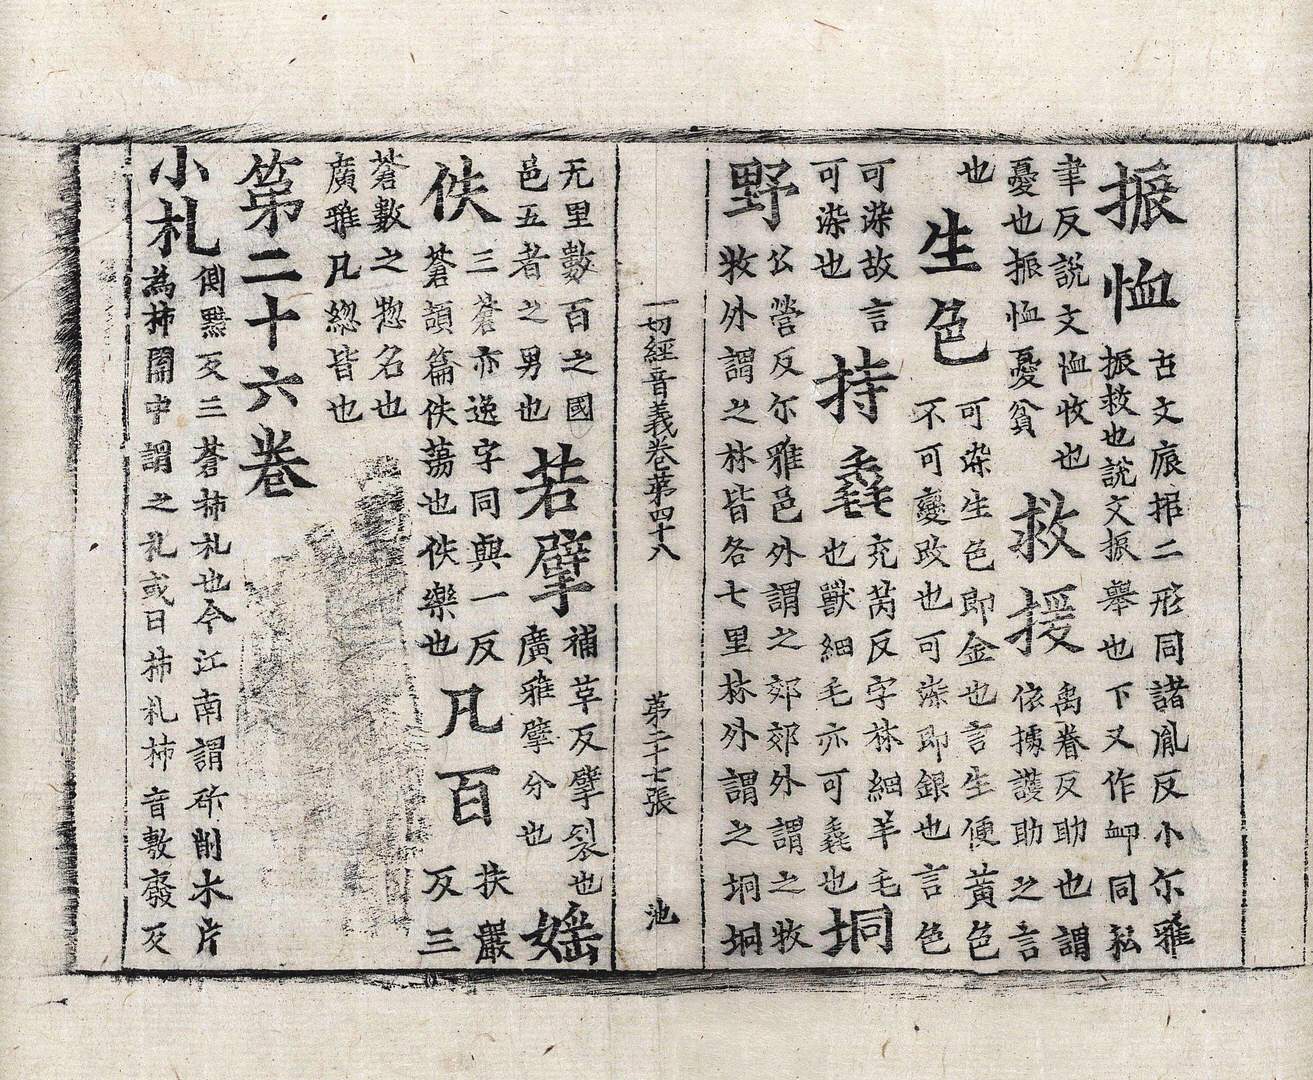 振恤古文㾕拒二形同諸胤反小尔雅振救也說文振舉也下又作卹同私
聿反說文恤收也憂也振恤憂貧救援禹眷反助也謂依據護助之言
也生色可染生色即金也言生便黃色不可變改也可染即銀也言色
可染故言可染也持毳充芮反字林細羊毛也獸細毛亦可毳也坰
野公營反尔雅邑外謂之郊郊外謂之牧牧外謂之林皆各七里林外謂之坰坰
一切經音義卷第四十八 第二十七張 池
无里數百之國邑五者之男也若擘補草反擘裂也廣雅擘分也媱
佚三蒼亦逸字同與一反蒼頡篇佚蕩也佚樂也凡百扶嚴反三
蒼數之惣名也廣雅凡緫皆也
第二十六卷
小札側黠反三蒼柿札也今江南謂斫削木片為柿關中謂之札或曰柿札柿音敷廢反